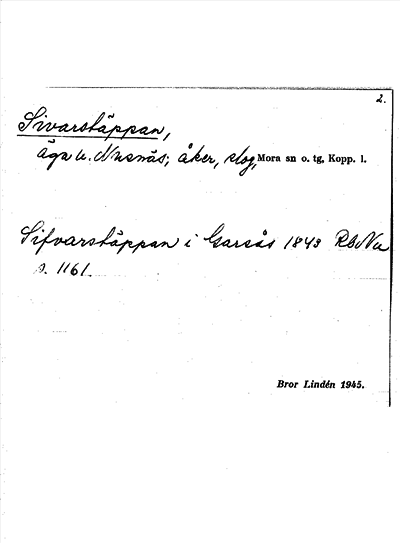 2.
Sivarstäppan,
äga u. Nusnäs; åker, slog, Mora sn o. tg, Kopp. l.
Sifvarstäppan i Garsås 1843 Rb Nu
s. 1161.
Bror Lindén 1945.